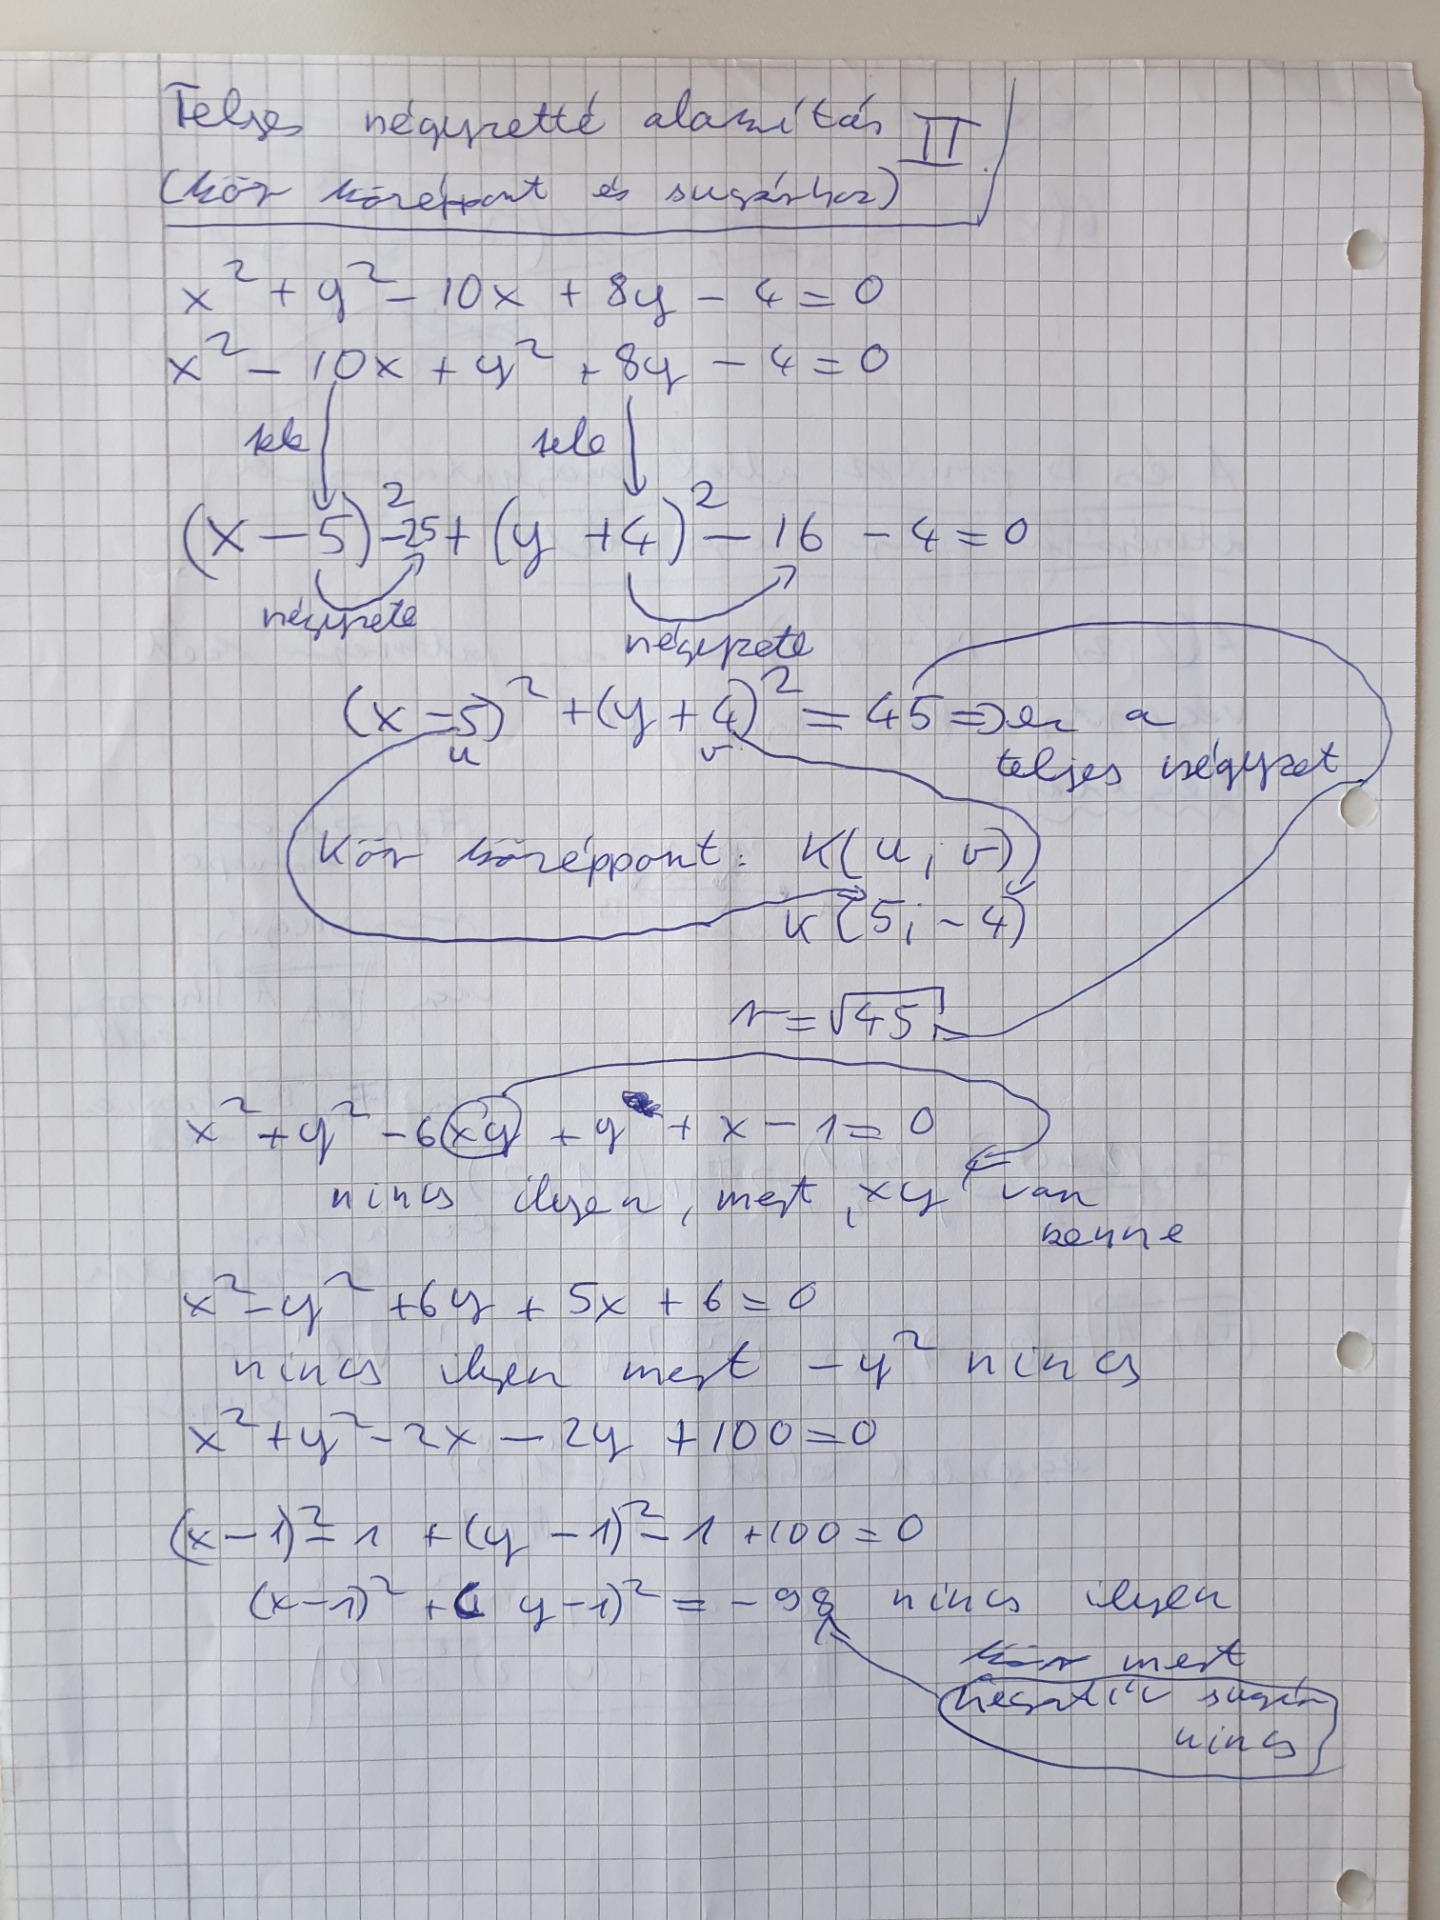 Teljes négyzetté alakítás II.
(kör középpont és sugárhoz)
x² + y² - 10x + 8y - 4 = 0
x² - 10x + y² + 8y - 4 = 0
fele fele
(x - 5)² - 25 + (y + 4)² - 16 - 4 = 0
négyzete
négyzete
(x - 5)² + (y + 4)² = 45 => ez a
u v teljes négyzet
Kör középpont: K(u; v)
K(5; -4)
r = √45
x² + y² - 6xy + y + x - 1 = 0
nincs ilyen, mert, xy van
benne
x² - y² + 6y + 5x + 6 = 0
nincs ilyen mert - y² nincs
x² + y² - 2x - 2y + 100 = 0
(x - 1)² - 1 + (y - 1)² - 1 + 100 = 0
(x - 1)² + (y - 1)² = - 98 nincs ilyen
kör mert
negatív sugár
nincs